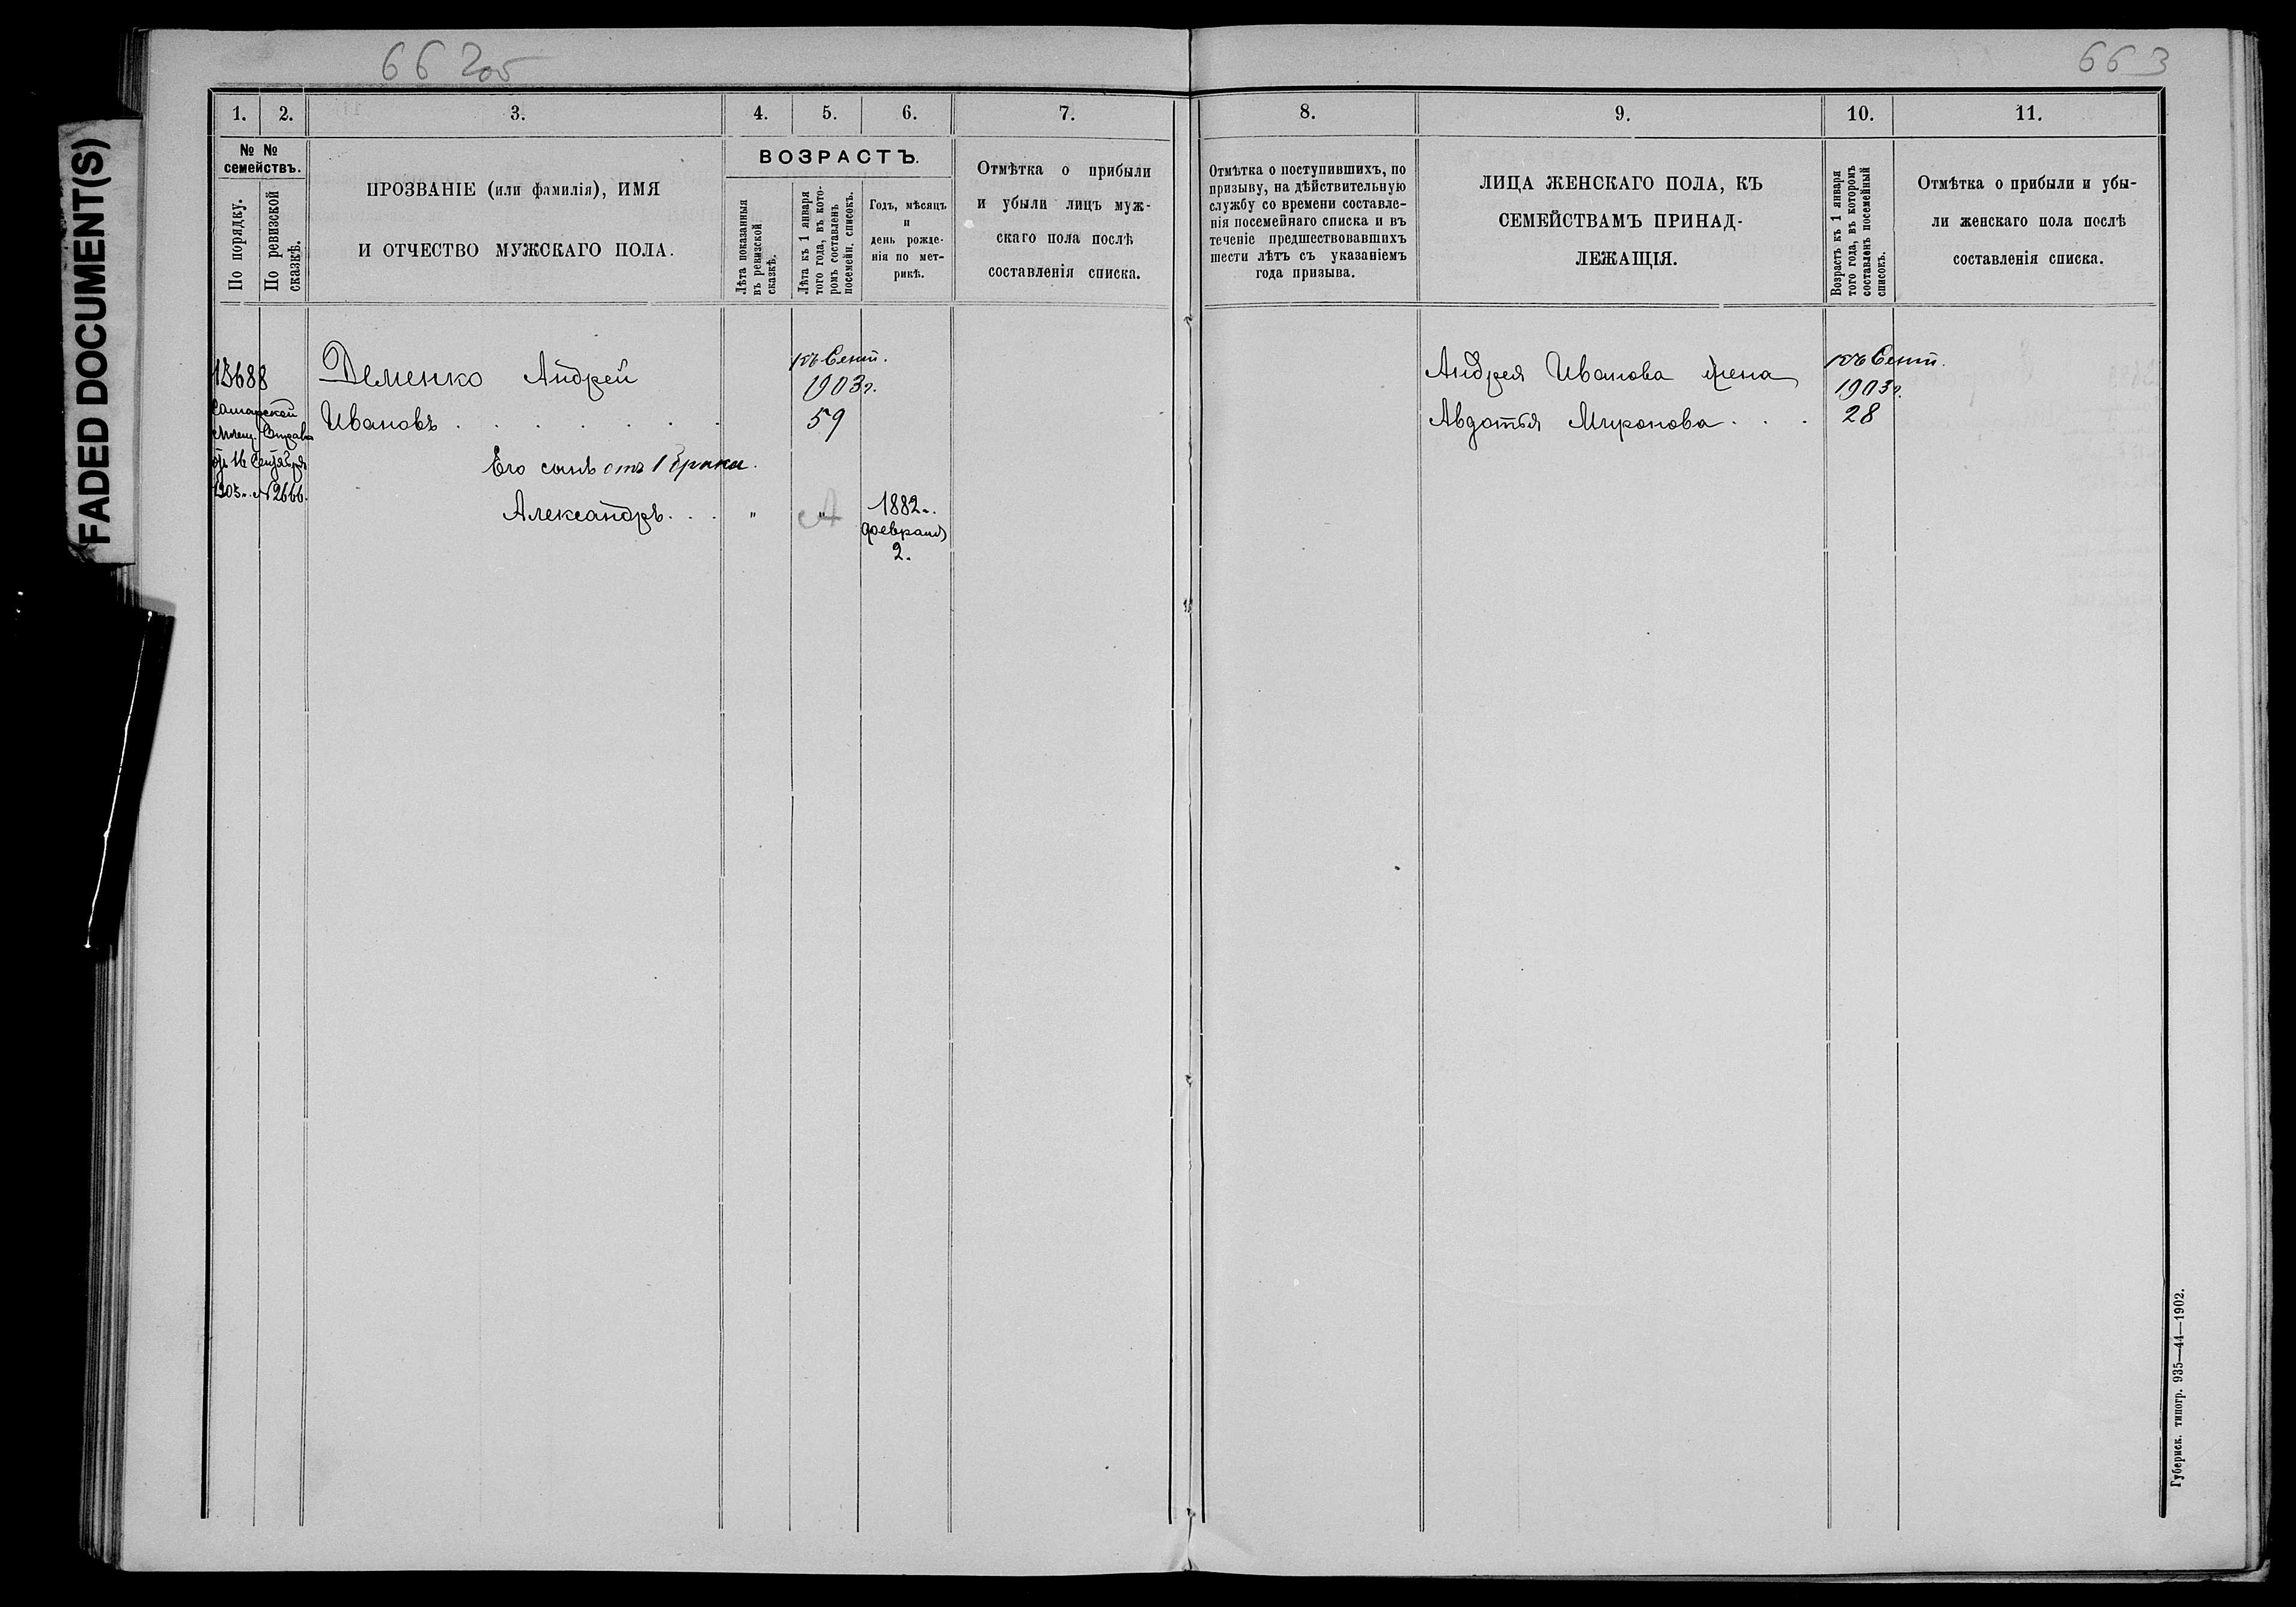 66 2об
663
FADED DOCUMENT(S)
1.
2.
3.
4.
5.
6.
7.
8.
9.
10.
11.
№ №
семействъ.
По порядку.
По ревизской
сказкѣ.
ПРОЗВАНІЕ (или фамилія), ИМЯ
И ОТЧЕСТВО МУЖСКАГО ПОЛА.
ВОЗРАСТЪ.
Лѣта показанныя
въ ревизской
сказкѣ.
Лѣта къ 1 января
того года, въ кото-
ромъ составленъ
посемейн. списокъ.
Годъ, мѣсяцъ
и
день рожде-
нія по мет-
рикѣ.
Отмѣтка о прибыли
и убыли лицъ муж-
скаго пола послѣ
составленія списка.
Отмѣтка о поступившихъ, по
призыву, на дѣйствительную
службу со времени составле-
нія посемейнаго списка и въ
теченіе предшествовавшихъ
шести лѣтъ съ указаніемъ
года призыва.
ЛИЦА ЖЕНСКАГО ПОЛА, КЪ
СЕМЕЙСТВАМЪ ПРИНАД-
ЛЕЖАЩІЯ.
Возрастъ къ 1 января
того года, въ которомъ
составленъ посемейный
списокъ.
Отмѣтка о прибыли и убы-
ли женскаго пола послѣ
составленія списка.
13688
Самарской
Мѣщ. Управы
отъ 16 Сентября
1903г. №2666.
Деменко Андрей
Ивановъ . . . . . . .
Его сынъ отъ 1 брака.
Александръ. . .
къ Сент.
1903г.
59
" "
1882г.
февраля
2.
Андрея Иванова жена
Авдотья Миронова. . .
къ Сент.
1903г.
28
Губернск. типогр. 935—44—1902.